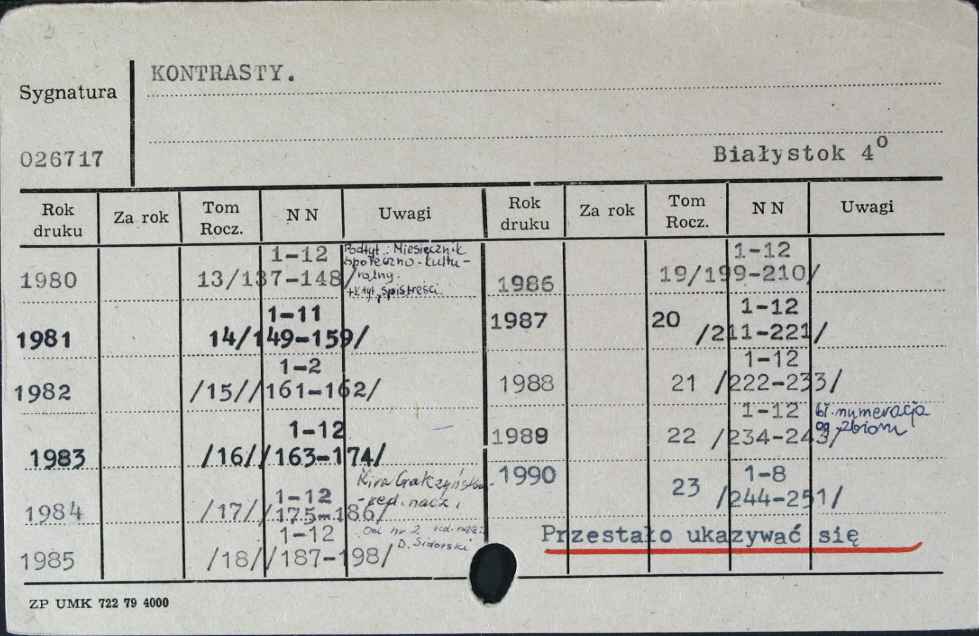 KONTRASTY.
Sygnatura
026717
Białystok 4º
Rok druku Za rok Tom Rocz. N N Uwagi Rok druku Za rok Tom Rocz. N N Uwagi
1-12
1980 13/137-148/
Podtyt.: Miesięcznik
społeczno-kultu-
ralny.
+k.tyt, spis treści
1-11
1981 14/149-159/
1-2
1982 /15//161-162/
1-12
1983 /16//163-174/
Kira Gałczyńska-
-red. nacz.,
1-12
1984 /17//175-186/
Od nr 2 red. nacz.:
D. Sidorski
1-12
1985 /18//187-198/
1-12
1986 19/199-210/
1-12
1987 20 /211-221/
1-12
1988 21 /222-233/
1-12
1989 22 /234-243/
bł. numeracja
og. zbioru
1-8
1990 23 /244-251/
Przestało ukazywać się
ZP UMK 722 79 4000